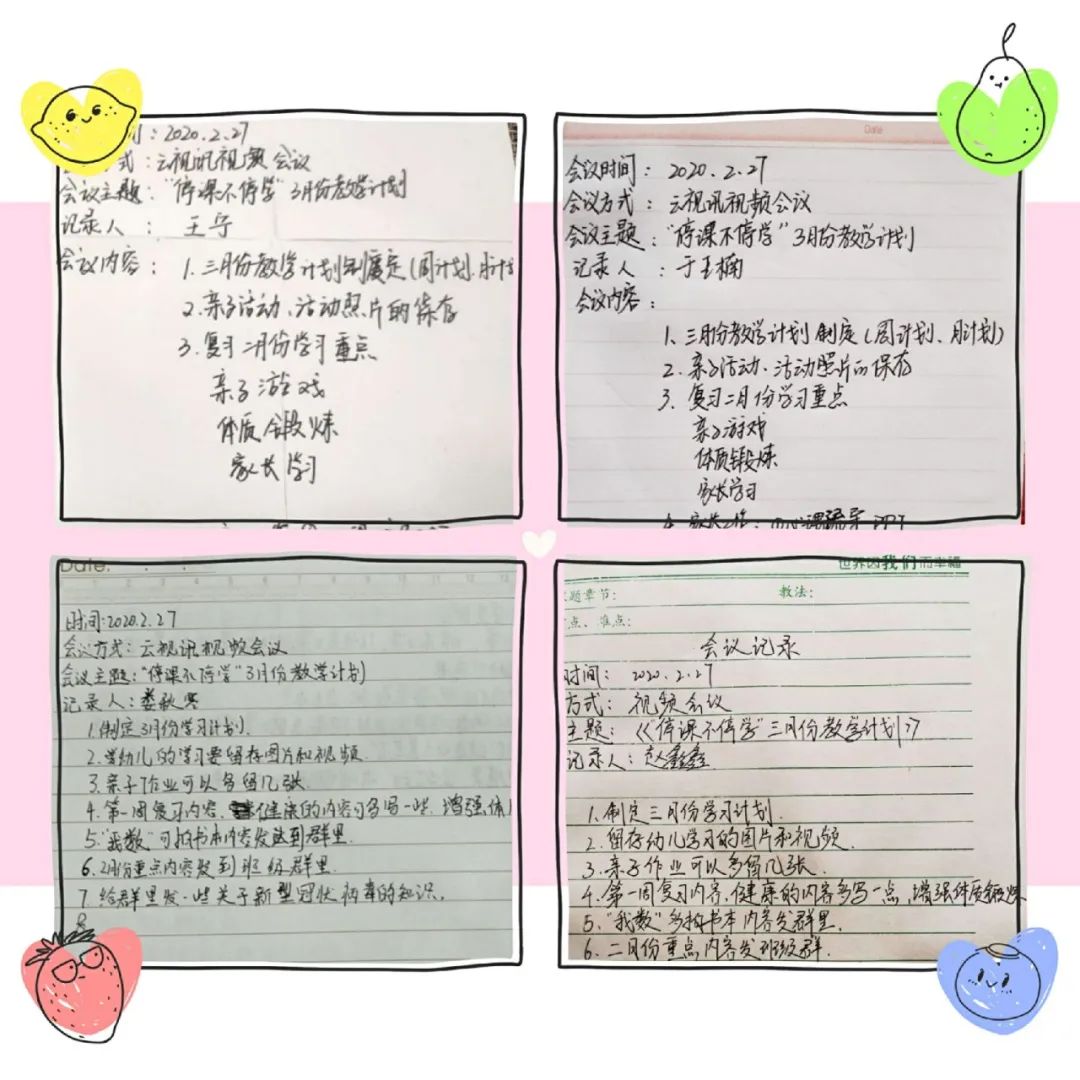 ：2020.2.27
式：云视讯视频会议
会议主题："停课不停学"3月份教学计划
记录人：王宁
会议内容：1.三月份教学计划制定(周计划、月计
2.亲子活动、活动照片的保存
3.复习二月份学习重点
亲子游戏
体质锻炼
家长学习
Date
会议时间：2020.2.27
会议方式：云视讯视频会议
会议主题："停课不停学"3月份教学计划
记录人：于王楠
会议内容：
1、三月份教学计划制定(周计划、月计划)
2、亲子活动、活动照片的保存
3、复习二月份学习重点
亲子游戏
体质锻炼
家长学习
Date:
时间:2020.2.27
会议方式：云视讯视频会议
会议主题："停课不停学"3月份教学计划
记录人：娄秋寒
1.制定3月份学习计划.
2.幼儿的学习要留存图片和视频.
3.亲子作业可以多留几张.
4.第一周复习内容,健康的内容可多写一些,增强体
5."我数"可拍书本内容发送到群里.
6.2月份重点内容发到班级群里.
7.给群里发一些关于新型冠状病毒的知识.
8
世界因我们而幸福
题章节： 教法：
点、难点：
会议记录
时间：2020.2.27
方式：视频会议
主题：《"停课不停学"三月份教学计划》
记录人：赵鑫鑫
1.制定三月份学习计划.
2.留存幼儿学习的图片和视频.
3.亲子作业可以多留几张.
4.第一周复习内容,健康的内容多写一点,增强体质锻炼
5."我数"多拍书本内容发群里.
6.二月份重点内容发班级群.